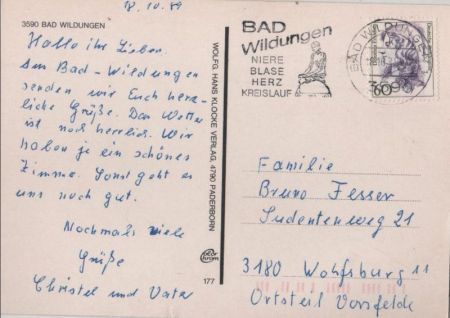 18.10.89
3590 BAD WILDUNGEN
Hallo ihr Lieben
Aus Bad-Wildungen
senden wir Euch herz-
liche Grüße. Das Wetter
ist noch herrlich. Wir
haben je ein schönes
Zimmer. Sonst geht es
uns noch gut.
Nochmals viele
Grüße
Christel und Vater
WOLFG. HANS KLOCKE VERLAG, 4790 PADERBORN
177
BAD
Wildungen
NIERE
BLASE
HERZ
KREISLAUF
BAD WILDUNGEN 1
3590
60
Familie
Bruno Fesser
Sudentenweg 21
3180 Wolfsburg 11
Ortsteil Vorsfelde